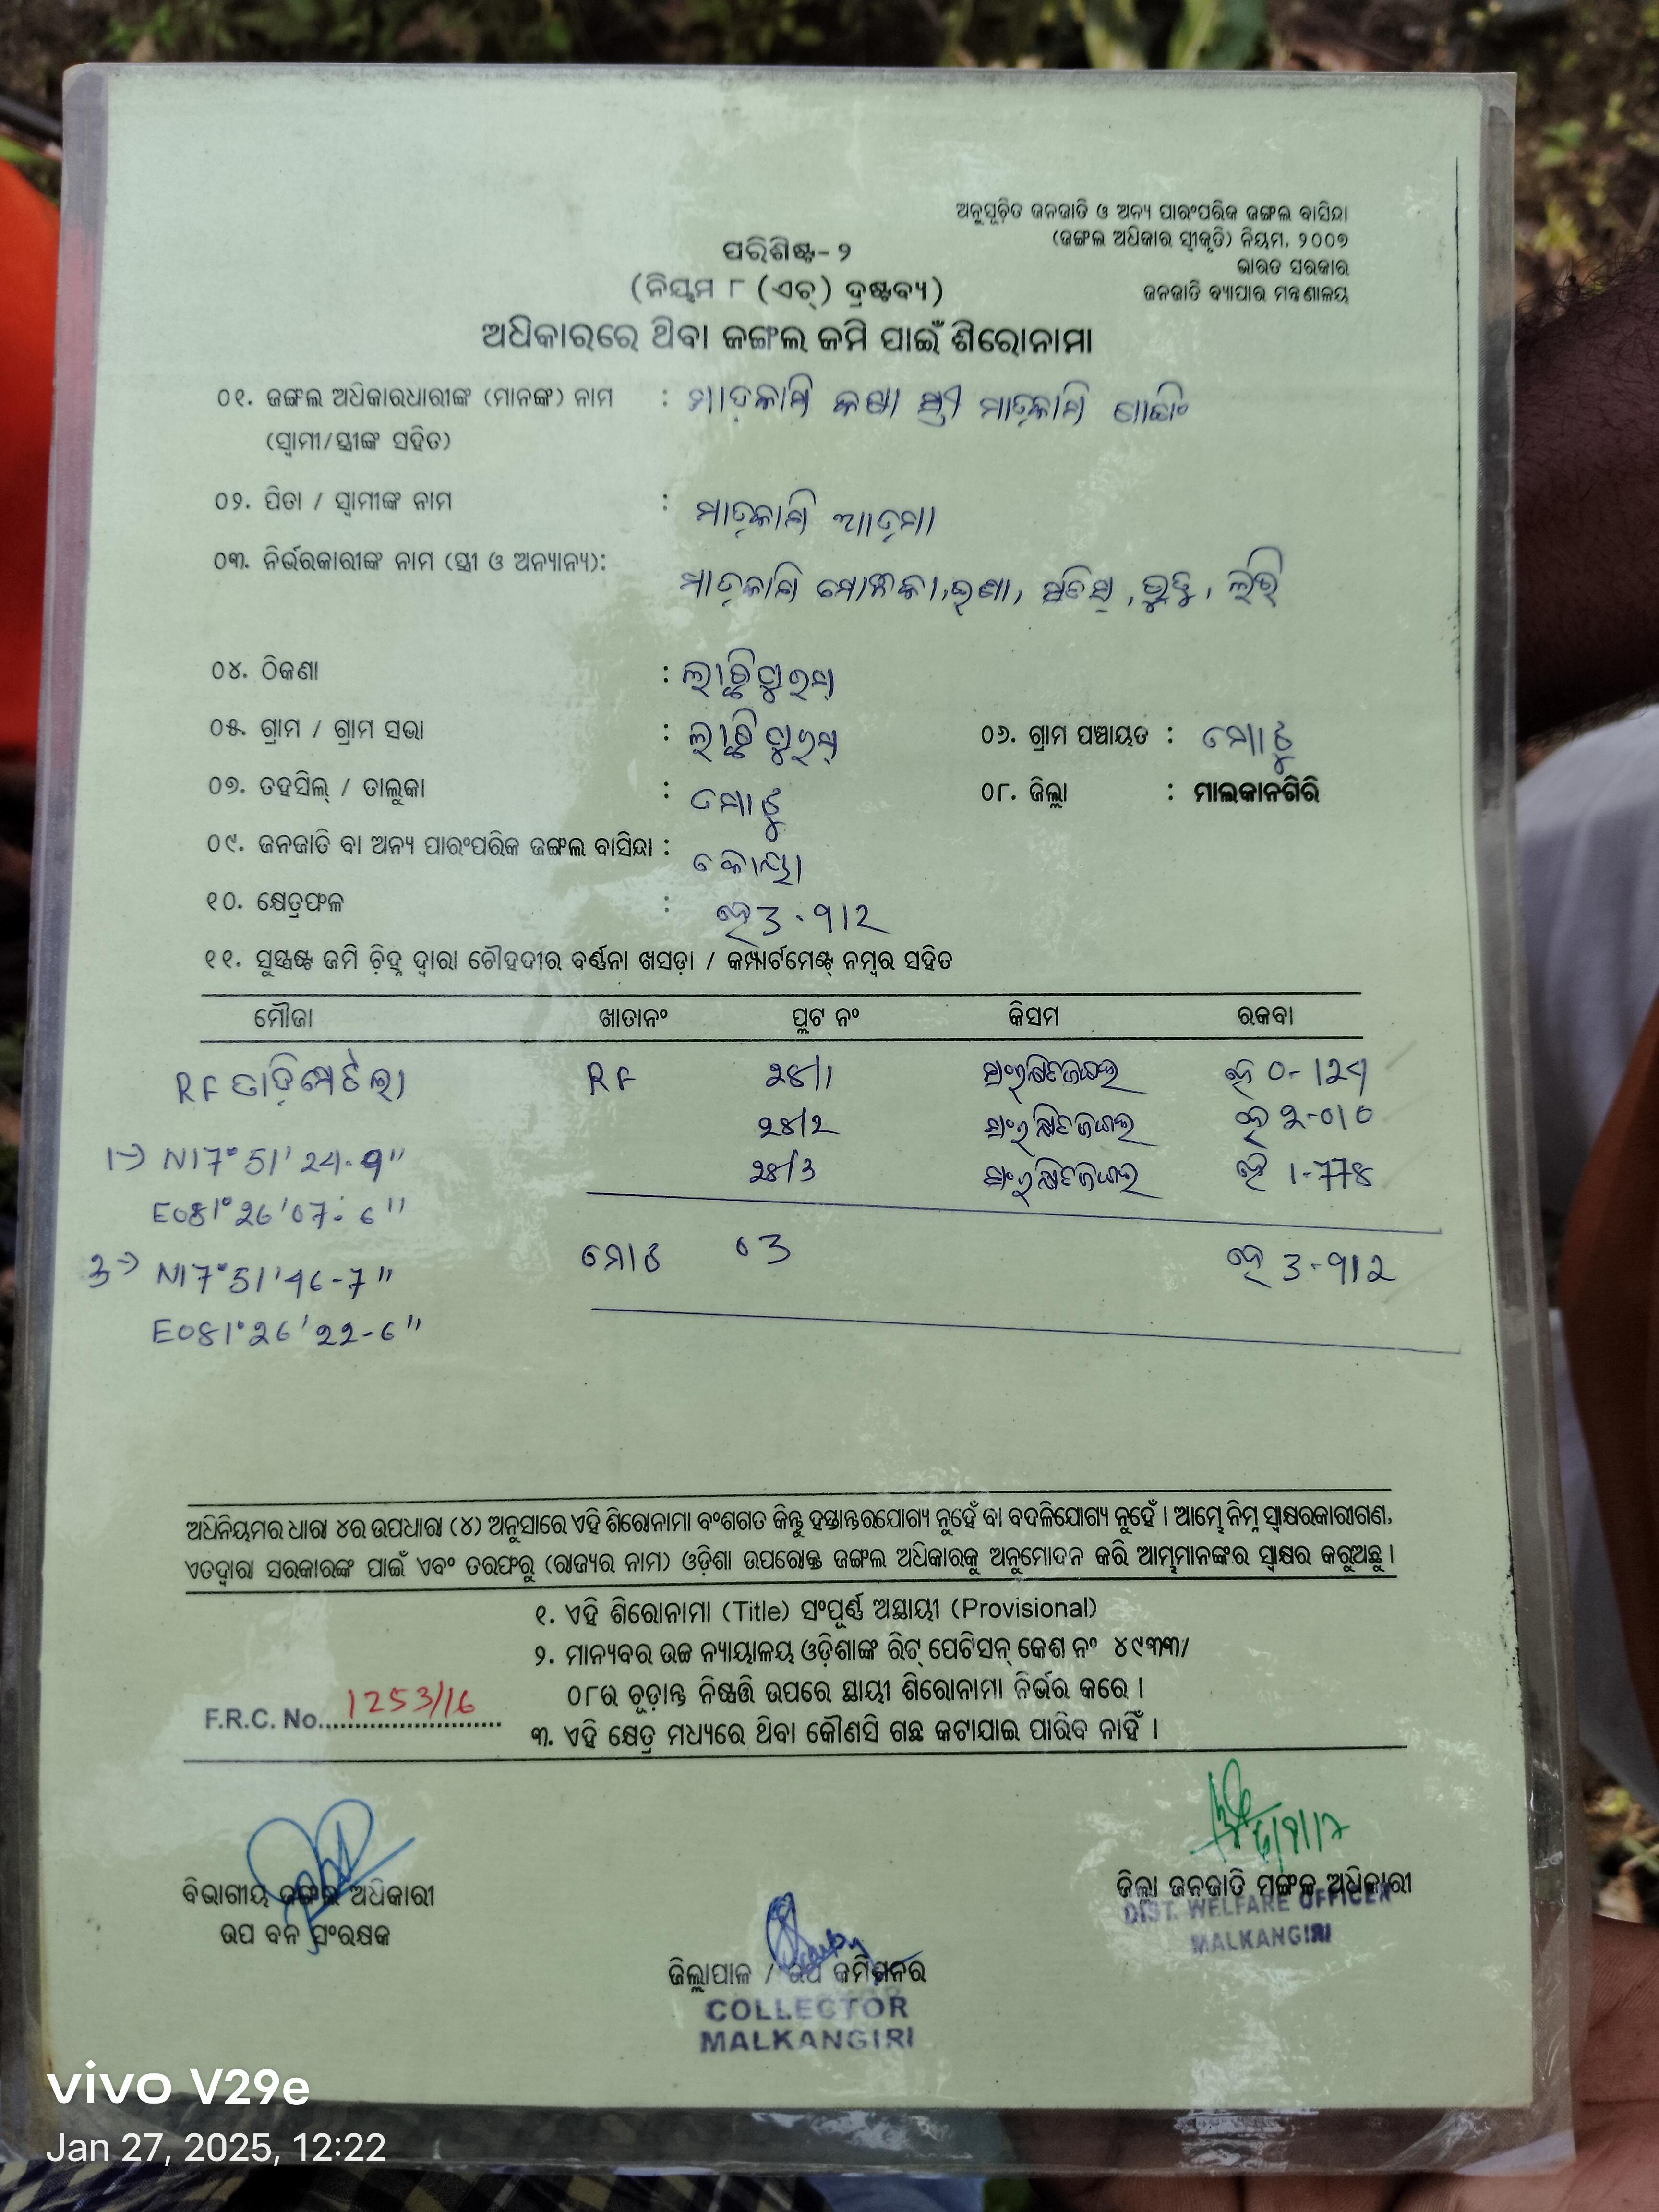 ଅନୁସୂଚିତ ଜନଜାତି ଓ ଅନ୍ୟ ପାରଂପରିକ ଜଙ୍ଗଲ ବାସିନ୍ଦା
(ଜଙ୍ଗଲ ଅଧିକାର ସ୍ୱୀକୃତି) ନିୟମ, ୨୦୦୭
ଭାରତ ସରକାର
ଜନଜାତି ବ୍ୟାପାର ମନ୍ତ୍ରଣାଳୟ
ପରିଶିଷ୍ଟ-୨
(ନିୟମ ୮ (ଏଚ୍) ଦ୍ରଷ୍ଟବ୍ୟ)
ଅଧିକାରରେ ଥିବା ଜଙ୍ଗଲ ଜମି ପାଇଁ ଶିରୋନାମା
୦୧. ଜଙ୍ଗଲ ଅଧିକାରଧାରୀଙ୍କ (ମାନଙ୍କ) ନାମ : ମାଡ଼କାମି ସ୍ତ୍ରୀ ମାଡ଼କାମି
(ସ୍ୱାମୀ/ସ୍ତ୍ରୀଙ୍କ ସହିତ)
୦୨. ପିତା / ସ୍ୱାମୀଙ୍କ ନାମ : ମାଡ଼କାମି ଆଡ଼ମା
୦୩. ନିର୍ଭରକାରୀଙ୍କ ନାମ (ସ୍ତ୍ରୀ ଓ ଅନ୍ୟାନ୍ୟ): ମାଡ଼କାମି
୦୪. ଠିକଣା :
୦୫. ଗ୍ରାମ / ଗ୍ରାମ ସଭା : ୦୬. ଗ୍ରାମ ପଞ୍ଚାୟତ : ମୋଟୁ
୦୭. ତହସିଲ୍ / ତାଲୁକା : ମୋଟୁ ୦୮. ଜିଲ୍ଲା : ମାଲକାନଗିରି
୦୯. ଜନଜାତି ବା ଅନ୍ୟ ପାରଂପରିକ ଜଙ୍ଗଲ ବାସିନ୍ଦା : କୋୟା
୧୦. କ୍ଷେତ୍ରଫଳ : ହେ 3.912
୧୧. ସୁସ୍ପଷ୍ଟ ଜମି ଚିହ୍ନ ଦ୍ୱାରା ଚୌହଦୀର ବର୍ଣ୍ଣନା ଖସଡ଼ା / କମ୍ପାର୍ଟମେଣ୍ଟ୍ ନମ୍ବର ସହିତ
ମୌଜା ଖାତାନଂ ପ୍ଲଟ ନଂ କିସମ ରକବା
RF RF 28/1 ସଂରକ୍ଷିତ ଜଙ୍ଗଲ ହେ 0-124
28/2 ସଂରକ୍ଷିତ ଜଙ୍ଗଲ ହେ 2-010
1-> N17°51'24.9" 28/3 ସଂରକ୍ଷିତ ଜଙ୍ଗଲ ହେ 1-778
E081°26'07.6"
3-> N17°51'46-7" ମୋଟ 03 ହେ 3-912
E081°26'22-6"
ଅଧିନିୟମର ଧାରା ୪ର ଉପଧାରା (୪) ଅନୁସାରେ ଏହି ଶିରୋନାମା ବଂଶଗତ କିନ୍ତୁ ହସ୍ତାନ୍ତରଯୋଗ୍ୟ ନୁହେଁ ବା ବଦଳିଯୋଗ୍ୟ ନୁହେଁ । ଆମ୍ଭେ ନିମ୍ନ ସ୍ୱାକ୍ଷରକାରୀଗଣ,
ଏତଦ୍ୱାରା ସରକାରଙ୍କ ପାଇଁ ଏବଂ ତରଫରୁ (ରାଜ୍ୟର ନାମ) ଓଡ଼ିଶା ଉପରୋକ୍ତ ଜଙ୍ଗଲ ଅଧିକାରକୁ ଅନୁମୋଦନ କରି ଆମ୍ଭମାନଙ୍କର ସ୍ୱାକ୍ଷର କରୁଅଛୁ ।
୧. ଏହି ଶିରୋନାମା (Title) ସଂପୂର୍ଣ୍ଣ ଅସ୍ଥାୟୀ (Provisional)
୨. ମାନ୍ୟବର ଉଚ୍ଚ ନ୍ୟାୟାଳୟ ଓଡ଼ିଶାଙ୍କ ରିଟ୍ ପେଟିସନ୍ କେଶ ନଂ ୪୯୩୩/
୦୮ର ଚୂଡ଼ାନ୍ତ ନିଷ୍ପତ୍ତି ଉପରେ ସ୍ଥାୟୀ ଶିରୋନାମା ନିର୍ଭର କରେ ।
F.R.C. No. 1253/16
୩. ଏହି କ୍ଷେତ୍ର ମଧ୍ୟରେ ଥିବା କୌଣସି ଗଛ କଟାଯାଇ ପାରିବ ନାହିଁ ।
ବିଭାଗୀୟ ଜଙ୍ଗଲ ଅଧିକାରୀ
ଉପ ବନ ସଂରକ୍ଷକ
ଜିଲ୍ଲା ଜନଜାତି ମଙ୍ଗଳ ଅଧିକାରୀ
DIST. WELFARE OFFICER
MALKANGIRI
ଜିଲ୍ଲାପାଳ / ଉପ କମିଶନର
COLLECTOR
MALKANGIRI
vivo V29e
Jan 27, 2025, 12:22